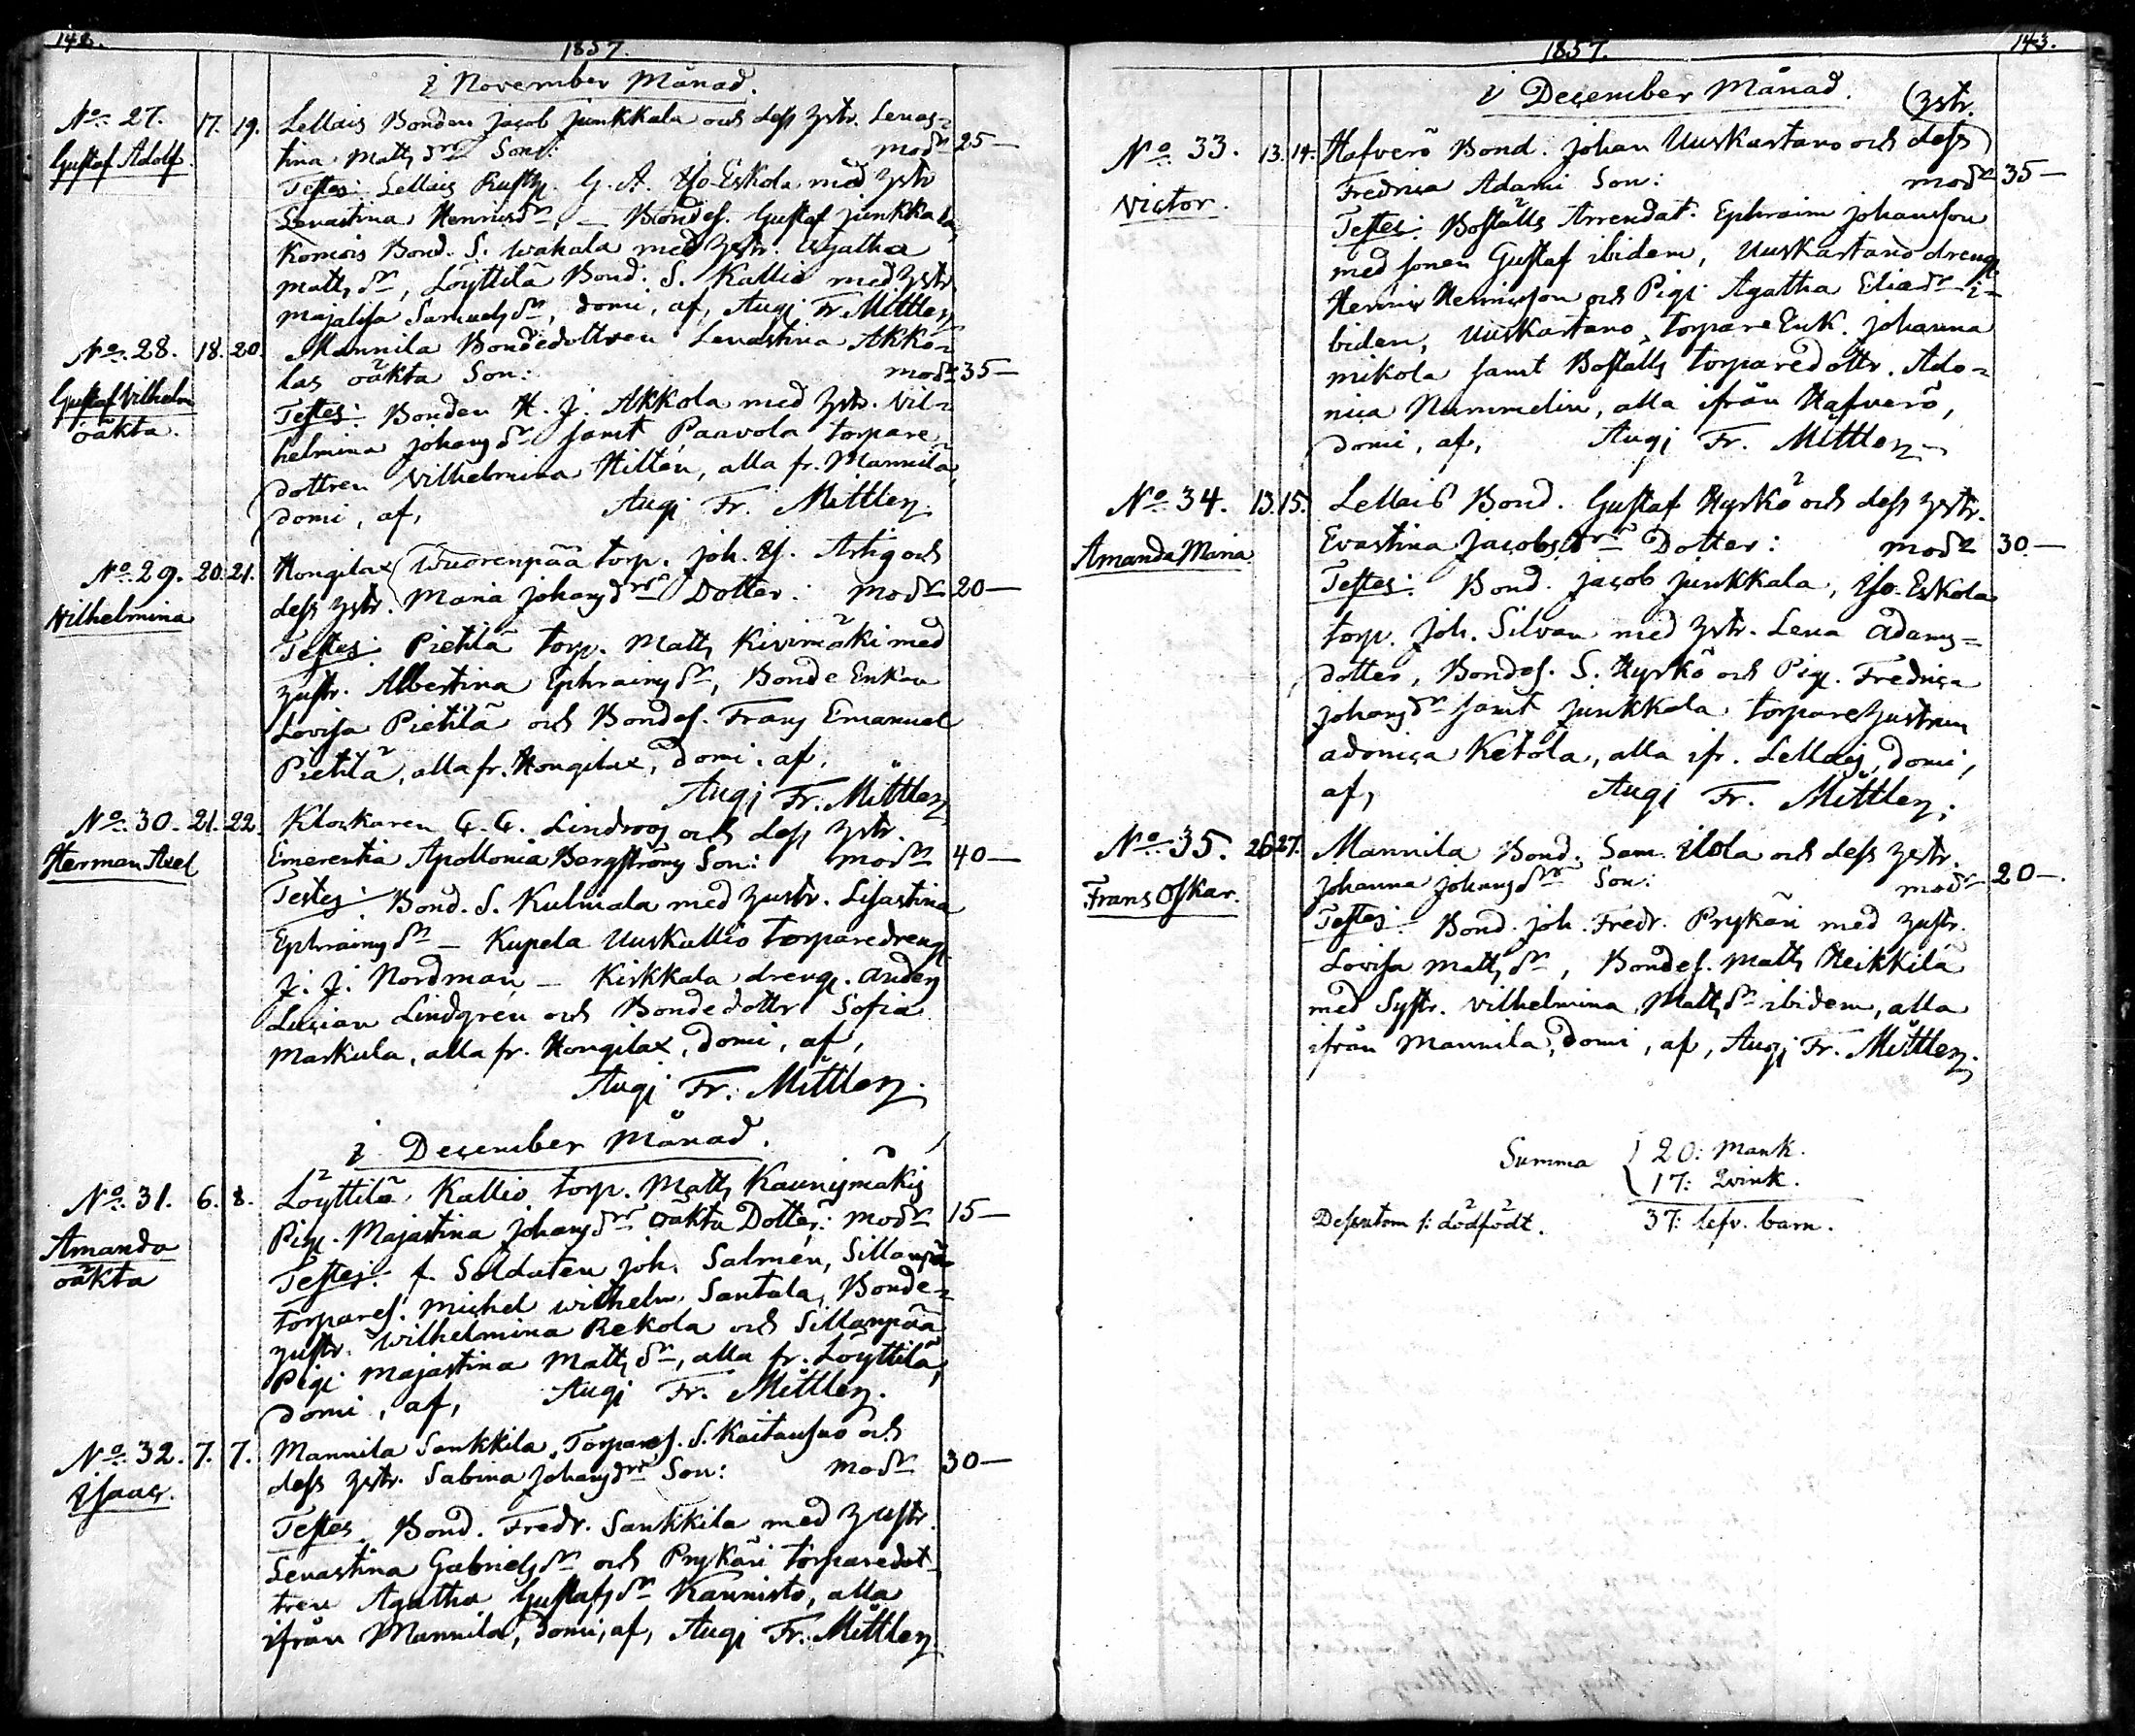 142.
1857.
i November Månad.
No. 27. 17. 19. Lellais Bonden Jacob Junkkala och dess hstr. Lenas=
Gustaf Adolf. tina Matts dr Son: modr 25 —
Testes: Lellais Rusth. G. A. Iso-Eskola med hstr
Lenastina Henricsdr, — Bondes. Gustaf Junkkala,
Komois Bond. S. Wahala med hstr. Agatha
Matts dr, Löyttilä Bond: S. Kallio med hstr
Majalisa Samuels dr, domi, af, Aug: Fr. Mittler
No. 28. 18. 20. Mannila Bondedottren Lenastina Akko=
Gustaf Vilhelm las oäkta Son: modr 35 —
oäkta. Testes: Bonden H. J. Akkola med hstr. Vil=
helmina Johans dr samt Paavola torpare
dottren Vilhelmina Hilten, alla fr. Mannila,
domi, af, Aug: Fr. Mittler.
No. 29. 20. 21. Hongilax Wuorenpää torp. Joh. Is. Artig och
Vilhelmina dess hstr. Maria Johans dr Dotter: modr 20 —
Testes: Pietilä torp. Matts Kivimäki med
hustr. Albertina Ephraims dr, Bonde Enkan
Lovisa Pietilä och Bondes. Frans Emanuel
Pietilä, alla fr. Hongilax, domi. af,
Aug: Fr. Mittler
No. 30. 21. 22. Klockaren G. G. Lindroos och dess hstr.
Herman Axel Emerentia Apollonia Bergströms Son: modr 40 —
Testes: Bond. S. Kulmala med hustr. Lisastina
Ephraims dr — Kupela Uuskallio torparedreng
J. J. Nordman — Kirkkala dreng. Anders
Lucian Lindgren och Bondedottr Sofia
Markula, alla fr. Hongilax, domi, af,
Aug: Fr. Mittler.
i December Månad.
No. 31. 6. 8. Löyttilä Kallio torp. Matts Kaunismäkis
Amanda Pig. Majastina Johans dr oäkta Dotter: modr 15 —
oäkta Testes: f. Soldaten Joh. Salmén, Sillanpää
torpares. Michel Wilhelm Santala, Bonde=
hustr. Wilhelmina Rekola och Sillanpää
Pig: Majastina Matts dr, alla fr. Löyttilä,
domi, af, Aug: Fr. Mittler.
No. 32. 7. 7. Mannila Sankkila, Torpares. S. och
Isaac. dess hstr. Sabina Johans dr Son: modr 30 —
Testes. Bond. Fredr. Sankkila med hustr.
Lenastina Gabriels dr och Prykäri torparedot=
tren Agatha Gustafs dr Kannisto, alla
ifrån Mannila, domi, af, Aug: Fr. Mittler
1857. 143.
i December Månad.
(hstr.
No. 33. 13. 14. Hafverö Bond. Johan Uuskartano och dess
Victor. Fredrica Adami Son: modr 35 —
Testes: Boställs Arrendat. Ephraim Johansson
med sonen Gustaf ibidem, Uuskartano dreng
Henric Henricsson och Pig: Agatha Eliadr i=
bidem, Uuskartano, torpare Enk. Johanna
Mikola samt Boställs torparedottr. Ado=
nica Nummelin, alla ifrån Hafverö,
domi, af, Aug: Fr. Mittler —
No. 34. 13. 15. Lellais Bond. Gustaf Hyrkö och dess hstr.
Amanda Maria Evastina Jacobs dr Dotter: modr 30. —
Testes: Bond. Jacob Junkkala, Iso-Eskola
torp. Joh. Silvan med hstr. Lena Adams=
dotter, Bondes. S. Hyrkö och Pig. Fredrica
Johans dr samt Junkkala torparehustrun
Adonica Ketola, alla ifr. Lellais, domi,
af, Aug: Fr. Mittler;
No. 35. 26. 27. Mannila Bond. Sam. Ilola och dess hstr.
Frans Oskar. Johanna Johans dr Son: modr 20 —.
Testes: Bond. Joh. Fredr. Prykäri med hustr.
Lovisa Matts dr, Bondes. Matts Heikkilä
med Systr. Vilhelmina Matts dr ibidem, alla
ifrån Mannila, domi, af, Aug: Fr. Mittler.
Summa { 20: Mank.
17: Qvink.
Dessutom 1: dödfödt. 37: lefv. barn.